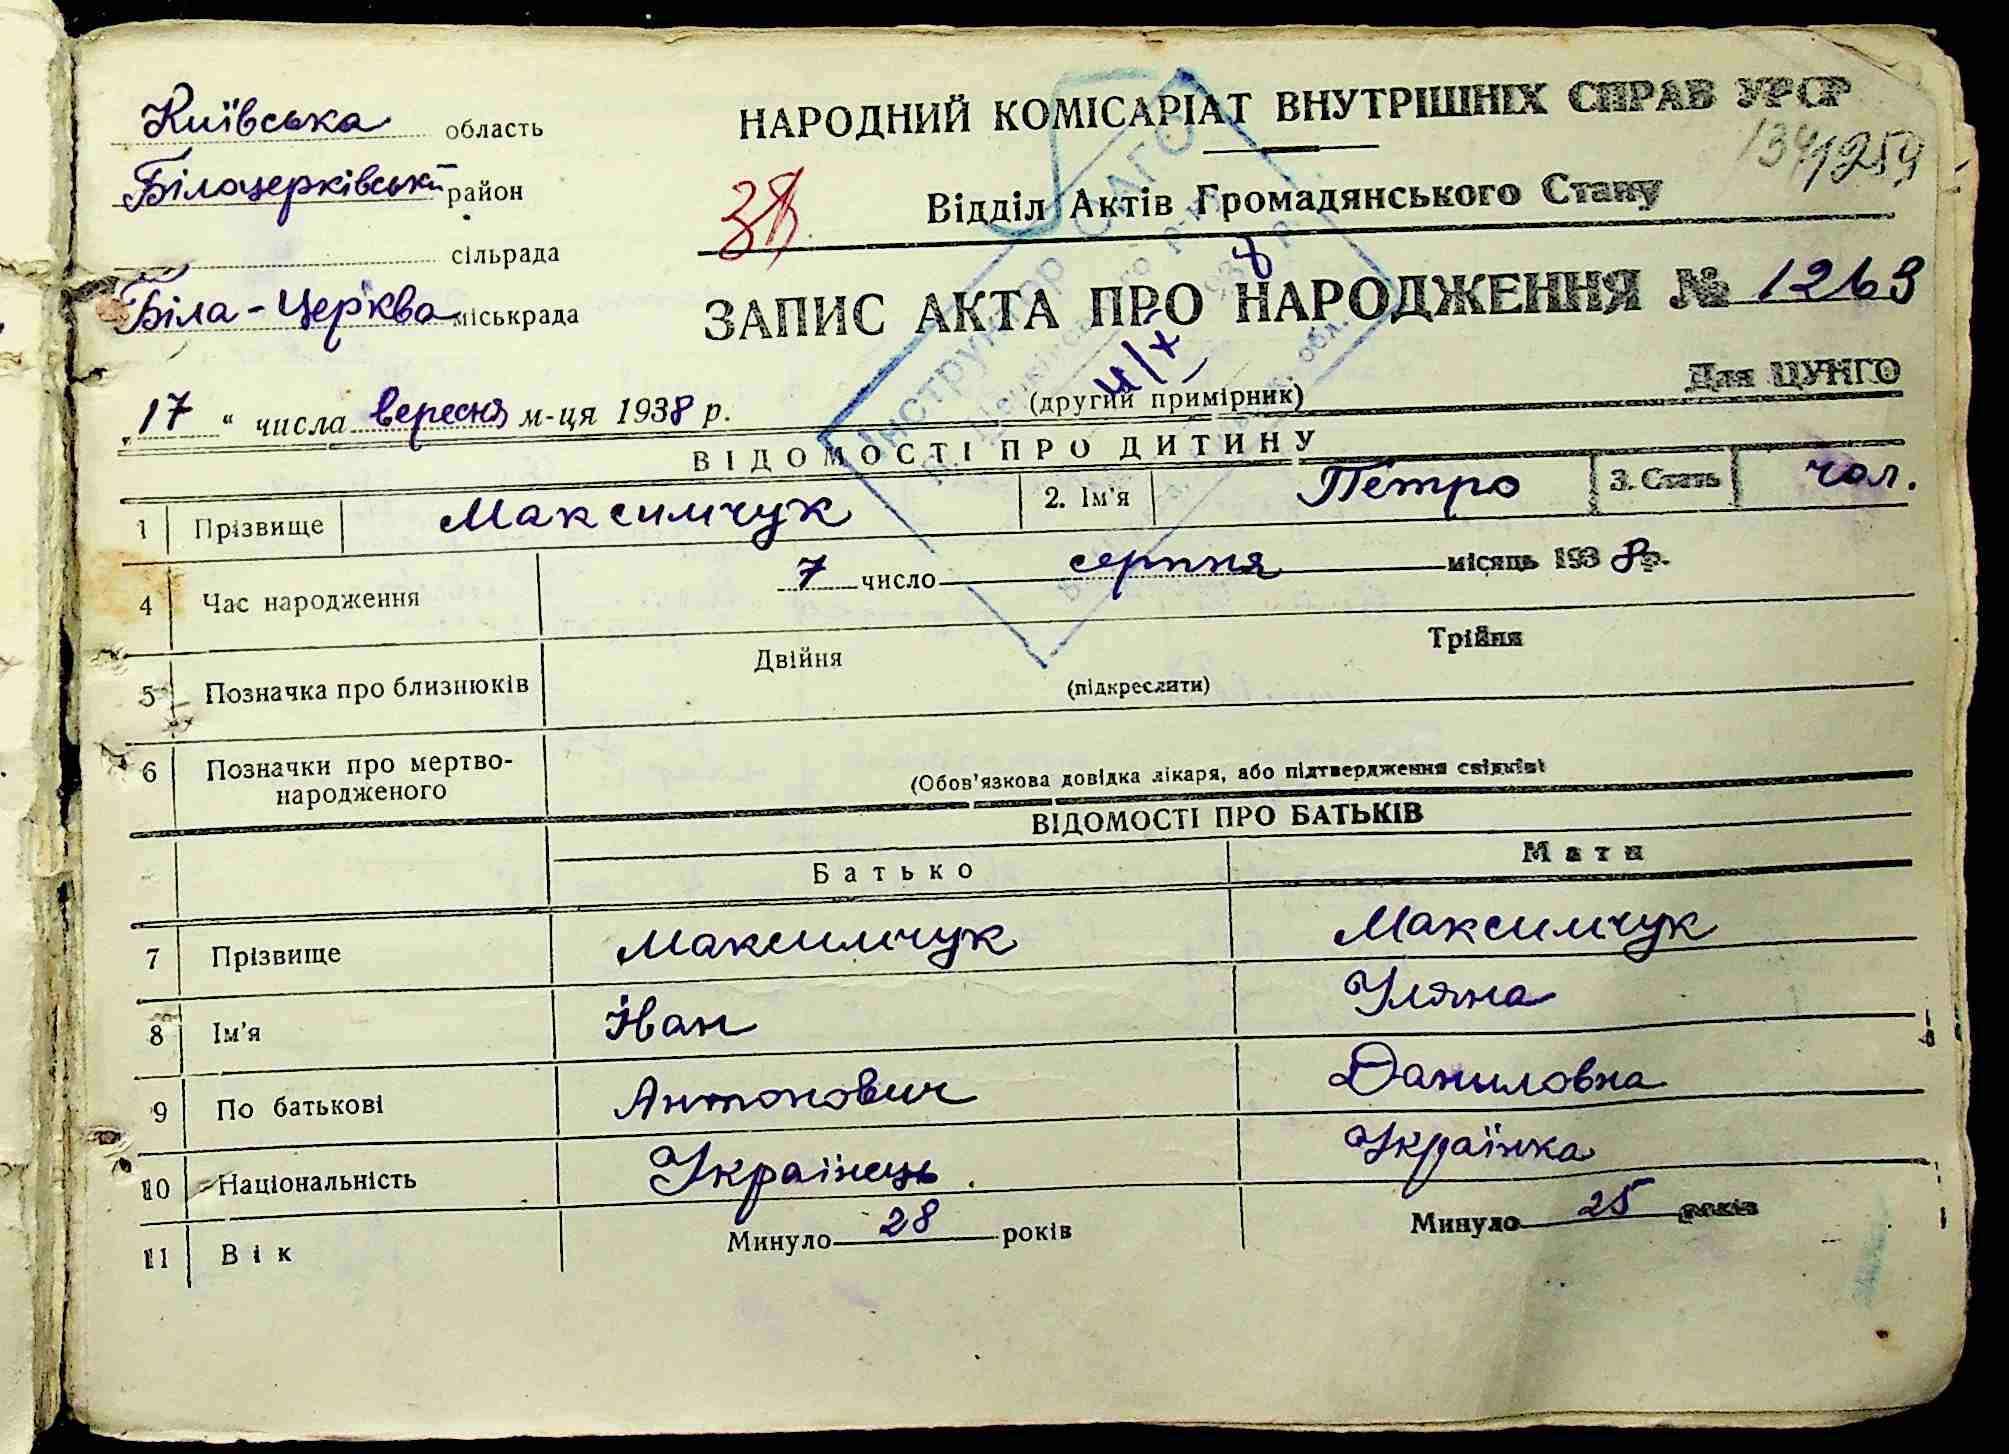 Київська область
Білоцерківський район
сільрада
Біла-Церква міськрада
НАРОДНИЙ КОМІСАРІАТ ВНУТРІШНІХ СПРАВ УРСР
38
Відділ Актів Громадянського Стану
ЗАПИС АКТА ПРО НАРОДЖЕННЯ № 1263
„17“ числа вересня м-ця 1938 р.
(другий примірник)
Для ЦУНГО
ВІДОМОСТІ ПРО ДИТИНУ
1 Прізвище Максимчук 2. Ім'я Петро 3. Стать чол.
4 Час народження 7 число серпня місяць 1938 р.
5 Позначка про близнюків Двійня Трійня
(підкреслити)
6 Позначки про мертво-
народженого
(Обов'язкова довідка лікаря, або підтвердження свідків)
ВІДОМОСТІ ПРО БАТЬКІВ
Батько Мати
7 Прізвище Максимчук Максимчук
8 Ім'я Іван Уляна
9 По батькові Антонович Даниловна
10 Національність Українець Українка
11 Вік Минуло 28 років Минуло 25 років
Інструктор ОАГС